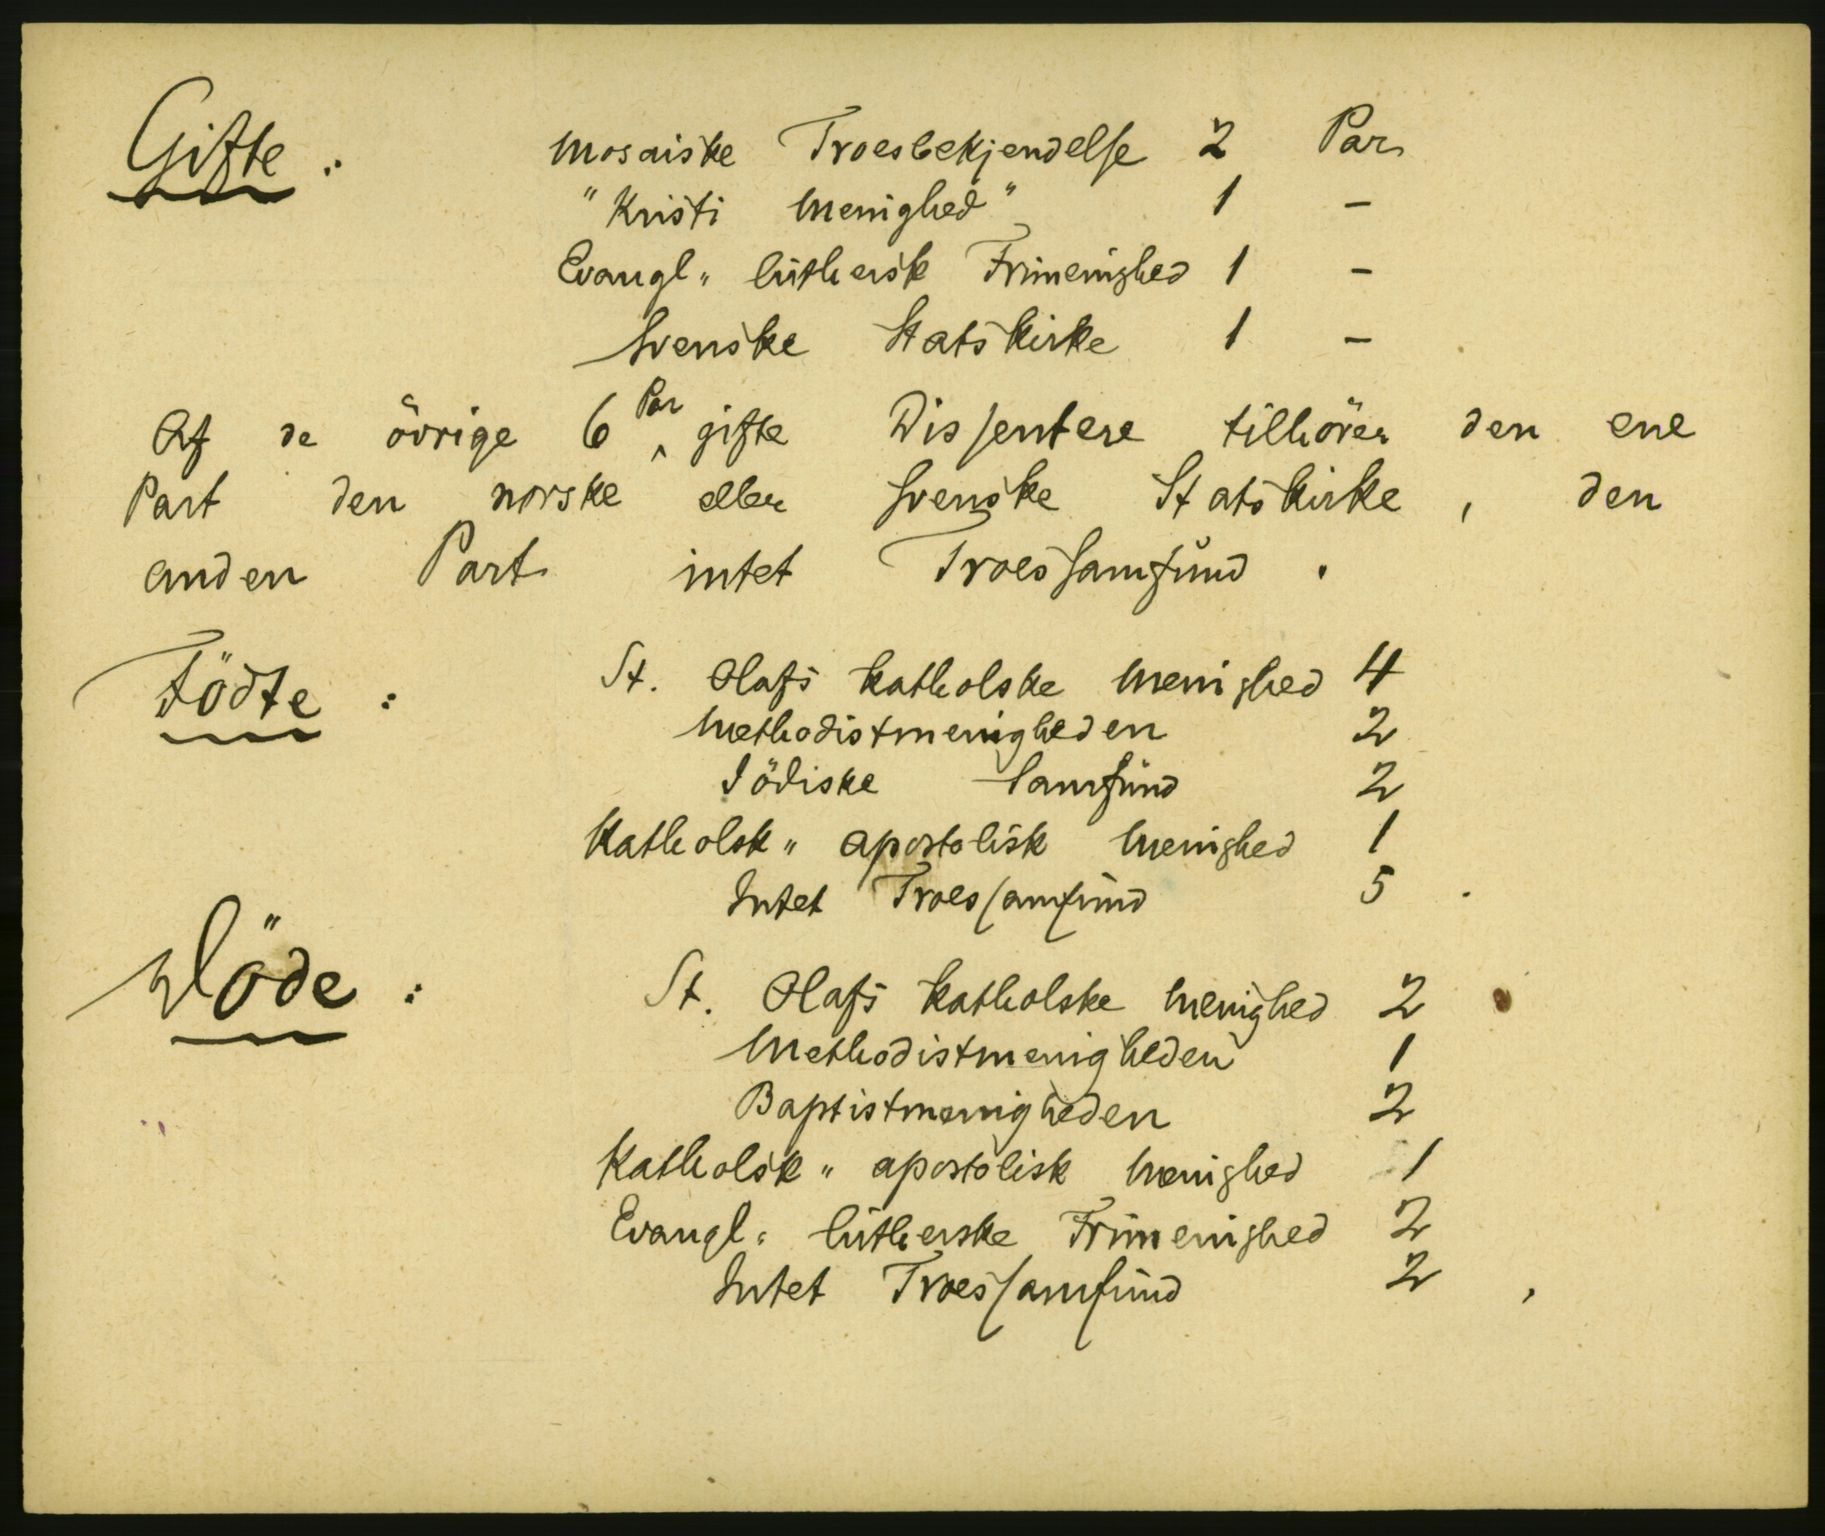 Gifte : Mosaiske Troesbekjendelse 2 Par
"Kristi Menighed" 1 -
Evangl. luthersk Frimenighed 1 -
Svenske Statskirke 1 -
Af de övrige 6 Par gifte Dissentere tilhörer den ene
Part den norske eller svenske Statskirke, den
anden Part intet Troessamfund.
Födte : St. Olafs katholske Menighed 4
Methodistmenigheden 2
Jödiske Samfund 2
Katholsk " apostolisk Menighed 1
Intet Troessamfund 5.
Döde : St. Olafs katholske Menighed 2
Methodistmenigheden 1
Baptistmenigheden 2
Katholsk " apostolisk Menighed 1
Evangl. lutherske Frimenighed 2
Intet Troessamfund 2,